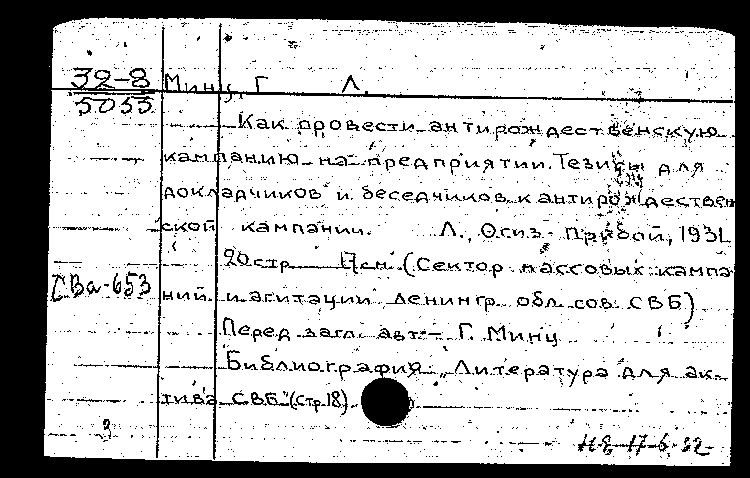 32-8
5055
Минц, Г. Л.
Как провести антирождественскую
кампанию на предприятии. Тезисы для
докладчиков и беседчиков к антирождествен
ской кампании. Л., Огиз - Прибой, 1931
20 стр 17см (Сектор массовых кампа
ТВа-653
ний и агитации Ленингр. обл. сов. СВБ)
Перед загл. авт. - Г. Минц
Библиография: "Литература для ак-
тива СВБ" (стр 18).
17-6-32